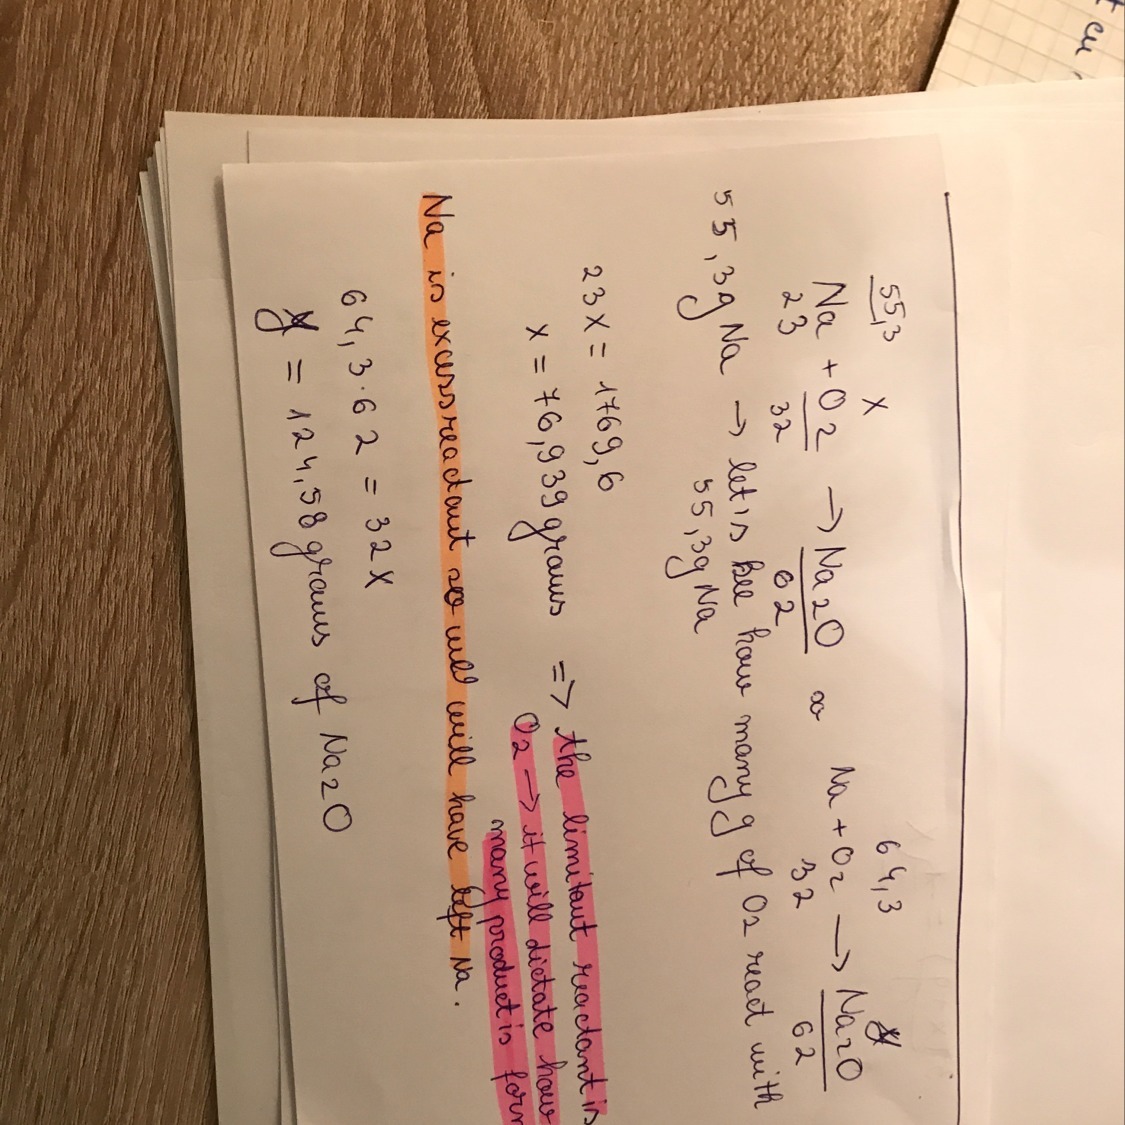 t cu
55,3 x 64,3 y
Na + O2 → Na2O ∞ Na + O2 → Na2O
23 32 62 32 62
55,3g Na → let is see how many g of O2 react with
55,3g Na
23x = 1769,6
x = 76,939 grams => the limitant reactant is
O2 → it will dictate how
many product is form
Na is excess reactant so will will have left Na.
64,3·62 = 32x
y = 124,58 grams of Na2O